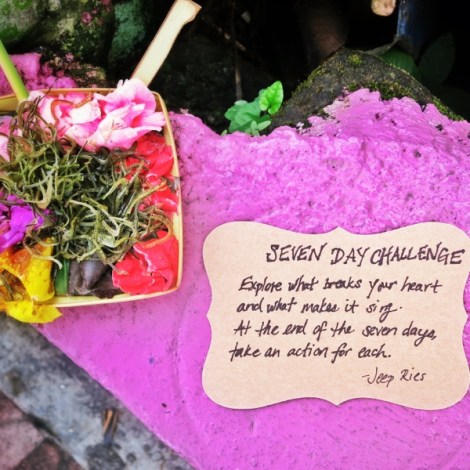 SEVEN DAY CHALLENGE
Explore what breaks your heart
and what makes it sing.
At the end of the seven days,
take an action for each.
-Jeep Ries